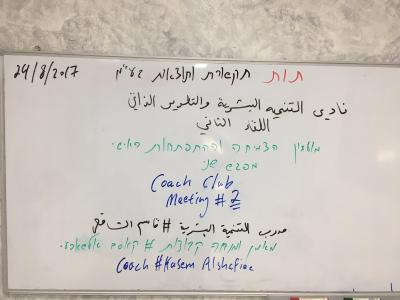 29/8/2017
תות תקשורת ותוצאות בע"מ
نادي التنمية البشرية والتطوير الذاتي
اللقاء الثاني
מועדון הצמיחה וההתפתחות האישית
מפגש שני
Coach Club
Meeting # 2
مدرب التنمية البشرية # قاسم الشافعي
מאמן ומנחה קבוצות # קאסם אלשאפעי
Coach # Kasem Alshafiae